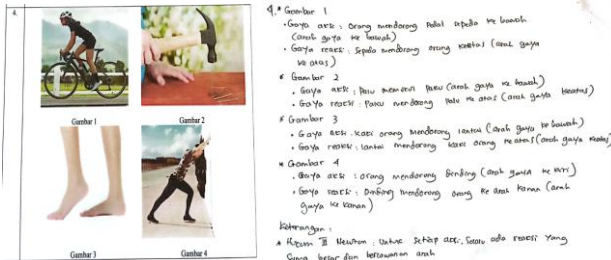 4.
Gambar 1
Gambar 2
Gambar 3
Gambar 4
4. * Gambar 1
• Gaya aksi : Orang mendorong Pedal sepeda ke bawah
(arah gaya ke bawah)
• Gaya reaksi : Sepeda mendorong orang keatas (arah gaya
ke atas)
* Gambar 2
• Gaya aksi : Palu memukul Paku (arah gaya ke bawah)
• Gaya reaksi : Paku mendorong Palu ke atas (arah gaya keatas)
* Gambar 3
• Gaya aksi : Kaki orang Mendorong lantai (arah gaya ke bawah)
• Gaya reaksi : lantai mendorong kaki orang keatas (arah gaya keatas)
* Gambar 4
• Gaya aksi : Orang mendorong Dinding (arah gaya ke kiri)
• Gaya reaksi : Dinding mendorong orang ke arah kanan (arah
gaya ke kanan)
Keterangan :
* Hukum III Newton : Untuk setiap aksi, Selalu ada reaksi Yang
Sama besar dan berlawanan arah